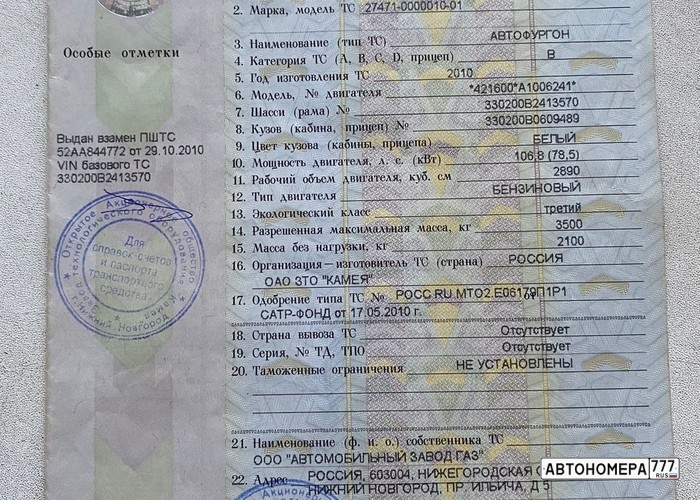 2. Марка, модель ТС 27471-0000010-01
Особые отметки
3. Наименование (тип ТС) АВТОФУРГОН
4. Категория ТС (А, В, С, D, прицеп) В
5. Год изготовления ТС 2010
6. Модель, № двигателя *421600*A1006241*
7. Шасси (рама) № 330200B2413570
8. Кузов (кабина, прицеп) № 330200B0609489
9. Цвет кузова (кабины, прицепа) БЕЛЫЙ
10. Мощность двигателя, л. с. (кВт) 106,8 (78,5)
11. Рабочий объем двигателя, куб. см 2890
12. Тип двигателя БЕНЗИНОВЫЙ
13. Экологический класс третий
14. Разрешенная максимальная масса, кг 3500
15. Масса без нагрузки, кг 2100
16. Организация—изготовитель ТС (страна) РОССИЯ
ОАО ЗТО "КАМЕЯ"
17. Одобрение типа ТС № РОСС RU.МТ02.Е06179П1Р1
САТР-ФОНД от 17.05.2010 г.
18. Страна вывоза ТС Отсутствует
19. Серия, № ТД, ТПО Отсутствует
20. Таможенные ограничения НЕ УСТАНОВЛЕНЫ
21. Наименование (ф. и. о.) собственника ТС
ООО "АВТОМОБИЛЬНЫЙ ЗАВОД ГАЗ"
22. Адрес РОССИЯ, 603004, НИЖЕГОРОДСКАЯ
НИЖНИЙ НОВГОРОД, ПР. ИЛЬИЧА, Д 5
Выдан взамен ПШТС
52АА844772 от 29.10.2010
VIN базового ТС
330200B2413570
Открытое Акционерное общество
технологического оборудования
Камея
Нижний Новгород
Для
справок-счетов
и паспорта
транспортного
средства
АВТОНОМЕРА 777
RUS